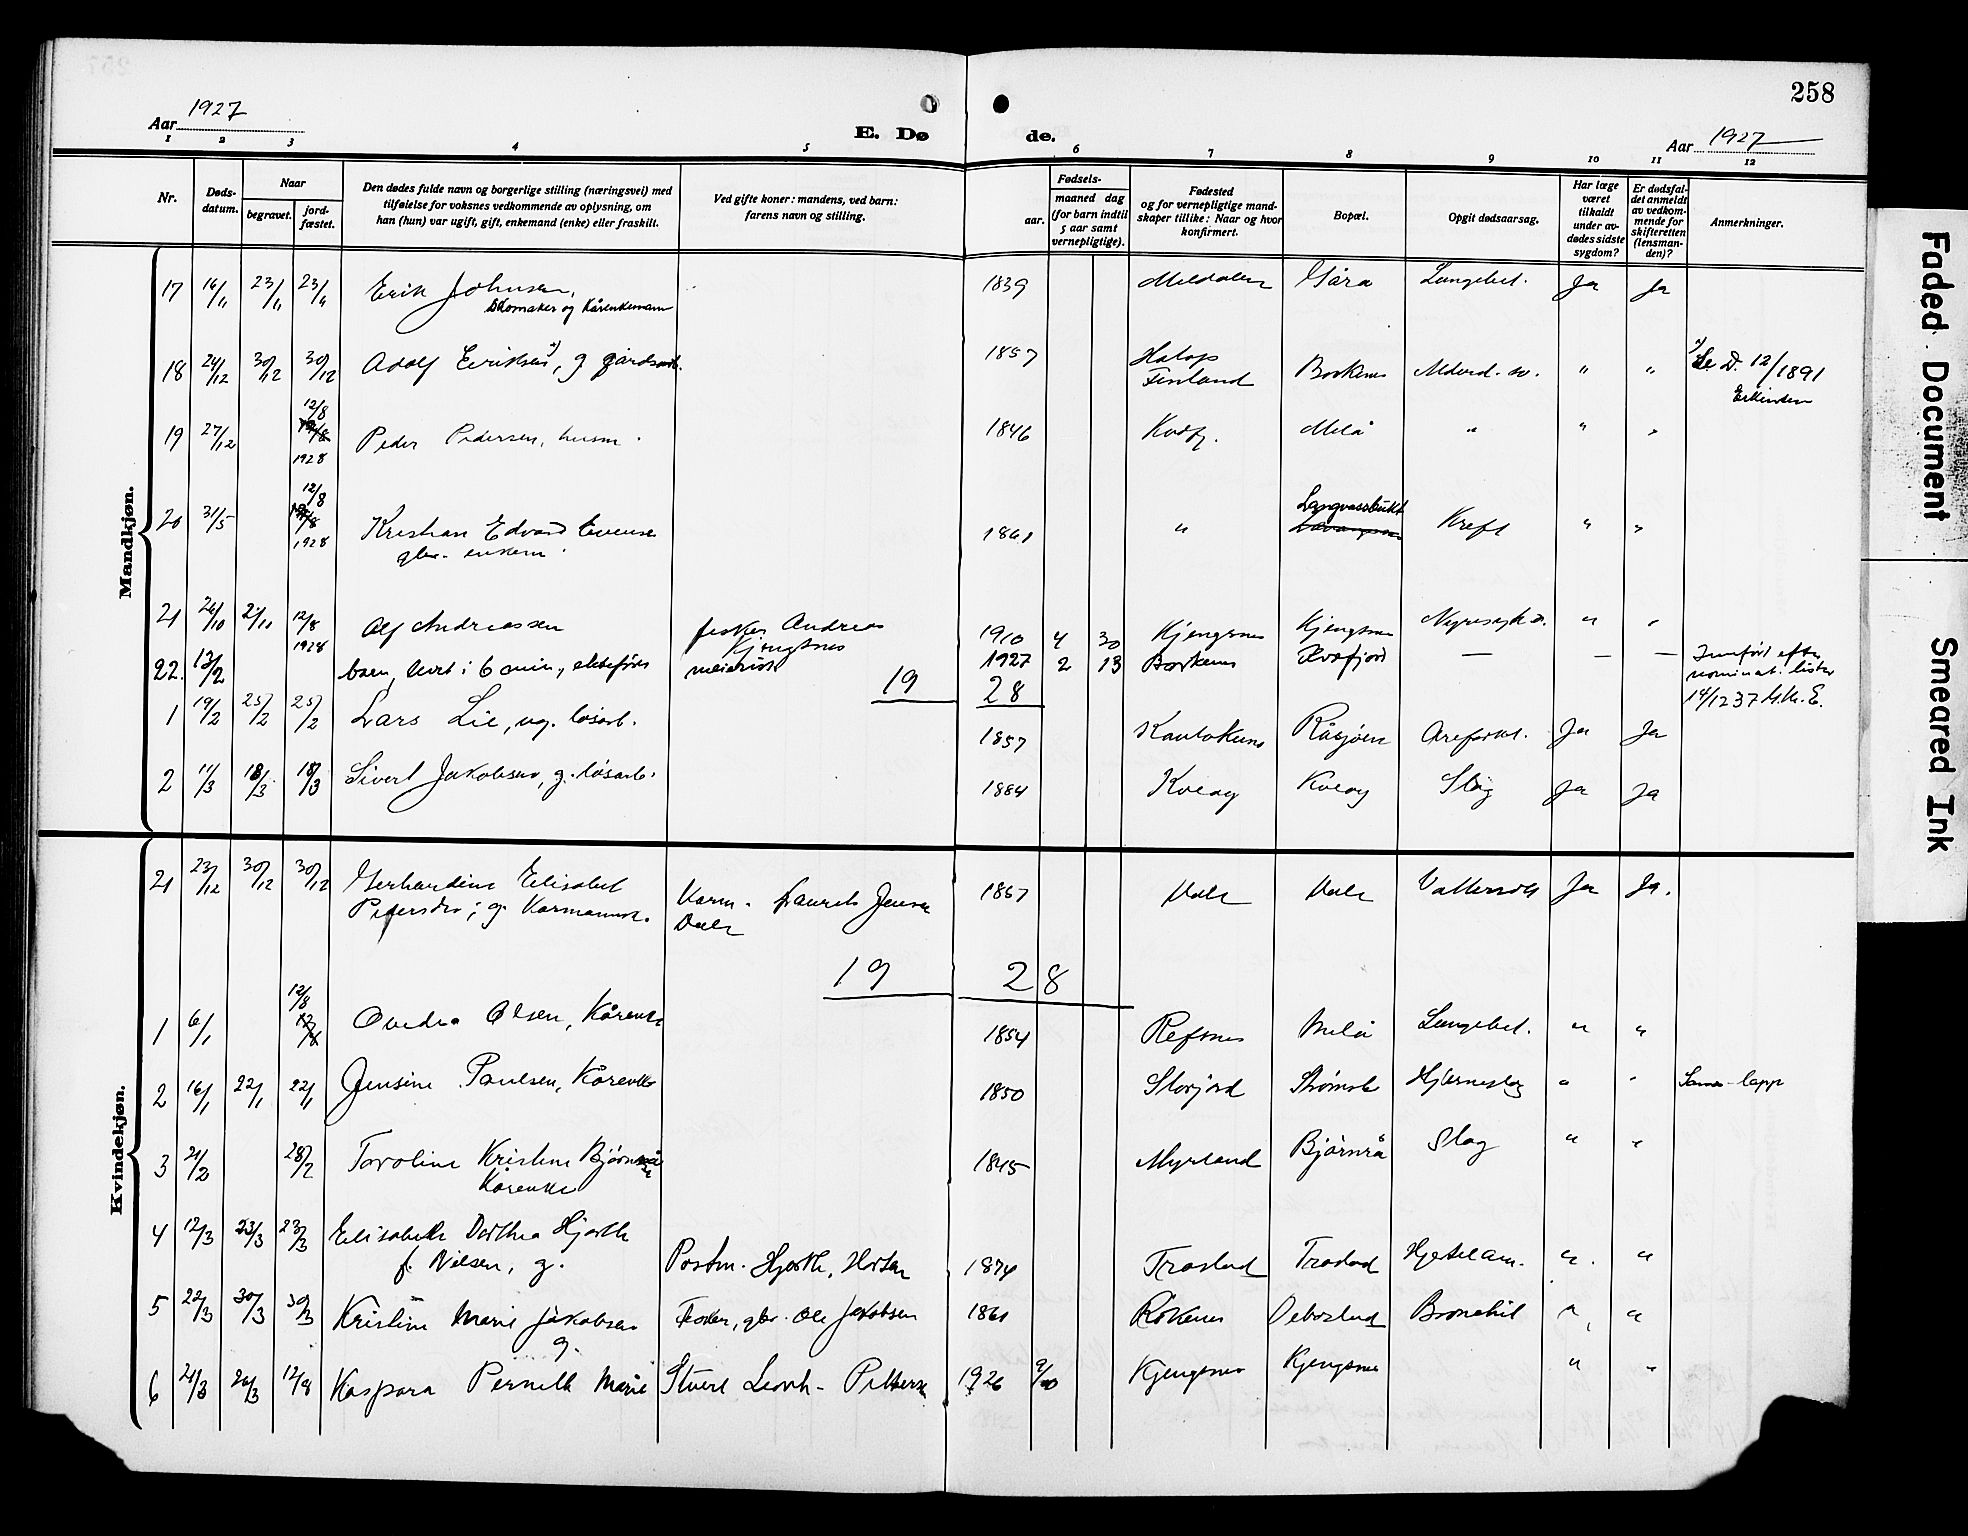 258
Aar 1927
E. Dø de.
Aar 1927
1 2 3 4 5 6 7 8 9 10 11 12
Nr.
Døds-
datum.
Naar
begravet.
jord-
fæstet.
Den dødes fulde navn og borgerlige stilling (næringsvei) med
tilføielse for voksnes vedkommende av oplysning, om
han (hun) var ugift, gift, enkemand (enke) eller fraskilt.
Ved gifte koner: mandens, ved barn:
farens navn og stilling.
Fødsels-
aar.
maaned dag
(for barn indtil
5 aar samt
vernepligtige).
Fødested
og for vernepligtige mand-
skaper tillike: Naar og hvor
konfirmert.
Bopæl.
Opgit dødsaarsag.
Har læge
været
tilkaldt
under av-
dødes sidste
sygdom?
Er dødsfal-
det anmeldt
av vedkom-
mende for
skifteretten
(lensman-
den)?
Anmerkninger.
Mandkjøn.
17 16/11 23/11 23/11 Erik Johnsen, 1839 Meldalen Gåra Lungebet. Ja Ja
Skomaker og Kårenkemann
18 24/12 30/12 30/12 Adolf Eriksen, g gårdsarb. 1857 Finland Borkenes " "
12/1891
19 27/12 12/8 1928 Peder Pedersen, husm. 1846 Kvæfj. Melå " " "
20 31/5 12/8 1928 Kristian Edvard Evensen 1861 " Langvassbukt Kreft " "
gbr. enkem.
21 26/10 2/11 12/8 1928 Alf Andreassen fisker Andreas 1910 4 30 Kjengsnes Kjengsnes Nyresykd. " "
Kjengsnes
22. 13/2 barn, levt i 6 min., ektefødt meierist 1927 2 13 Borkenes Kvæfjord — — — Innført efter
nominat. lister
14/12 37
19 28
1 19/2 25/2 25/2 Lars Lie, ug. løsarb. 1857 Kautokeino Råsjøen Ja Ja
2 11/3 18/3 18/3 Sivert Jakobsen, g. løsarb. 1884 Kveøy Kveøy Slag Ja Ja
Kvindekjøn.
21 23/12 30/12 30/12 Gerhardine Elisabet Kårm. Laurits Jensen 1857 Dale Dale Vattersot Ja Ja.
Pedersdtr; g. Kårmannsk. Dale
19 28
1 6/1 12/8 Ovedia Olsen, Kårenke 1854 Refsnes Melå Lungebet. " "
2 16/1 22/1 22/1 Jensine Paulsen, Kårenke 1850 Storjord Strømsli Hjerneslag " " Same-lapp
3 21/2 28/2 Toroline Kristine Bjørnrå 1845 Myrland Bjørnrå Slag " "
Kårenke
4 12/3 23/3 23/3 Elisabeth Dorthea Hjorth
f. Nilsen, g. Postm. Hjorth, Horten 1874 Trastad Trastad Hjertelam. " "
5 22/3 30/3 30/3 Kristine Marie Jakobsen Fisker, gbr. Ole Jakobsen 1861 Røkenes Bronchit " "
g.
6 21/3 26/3 12/8 Kaspara Pernille Marie Sivert Leonh. Pettersen 1926 9/10 Kjengsnes Kjengsnes " "
Faded Document
Smeared Ink